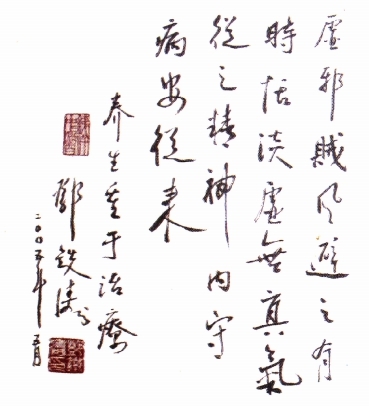 虛邪賊风避之有
時恬淡虛無真氣
從之精神内守
病安從来
养生重于治療
鄧铁涛
二〇〇五年五月